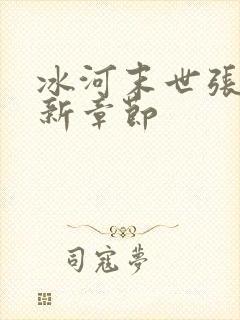 冰河末世張
新章節
司寇夢